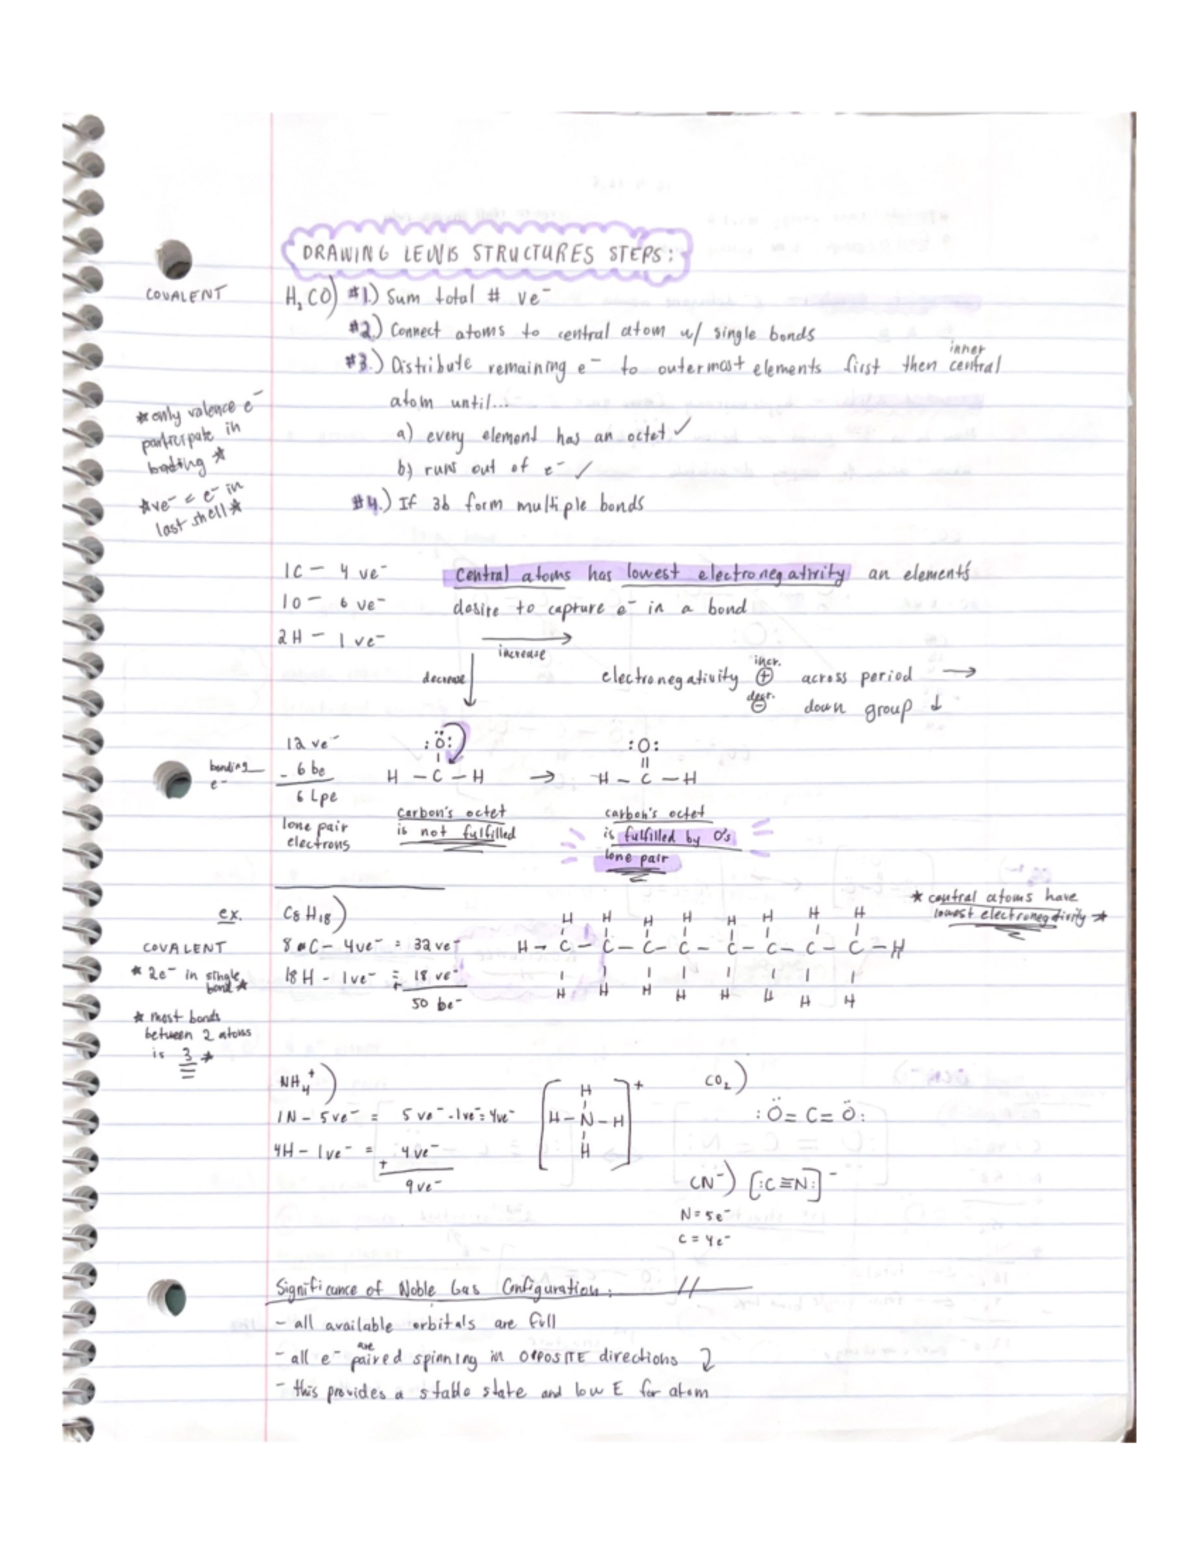 DRAWING LEWIS STRUCTURES STEPS:
COVALENT
H₂CO) #1.) Sum total # ve⁻
#2.) Connect atoms to central atom w/ single bonds
#3.) Distribute remaining e⁻ to outermost elements first then inner central
atom until...
a) every element has an octet ✓
b) runs out of e⁻ ✓
#4.) If 3b form multiple bonds
★ only valence e⁻
participate in
bonding ★
★ve⁻ = e⁻ in
last shell★
1C – 4 ve⁻
1O – 6 ve⁻
2H – 1 ve⁻
Central atoms has lowest electronegativity an elements
desire to capture e⁻ in a bond
increase
decrease
electronegativity incr. ⊕ across period →
decr. ⊖ down group ↓
12 ve⁻
bonding e⁻ - 6 be
6 Lpe
lone pair
electrons
:Ö:
H – C – H →
carbon's octet
is not fulfilled
:O:
||
H – C – H
carbon's octet
is fulfilled by O's
lone pair
★ central atoms have
lowest electronegativity ★
ex. C8H18)
COVALENT
★ 2e⁻ in single
bond★
★ most bonds
between 2 atoms
is 3 ★
8 C – 4ve⁻ = 32 ve⁻
18H – 1ve⁻ = + 18 ve⁻
50 be⁻
H H H H H H H H
H – C – C – C – C – C – C – C – C – H
H H H H H H H H
NH₄⁺)
1N – 5ve⁻ = 5 ve⁻ - 1ve⁻ = 4ve⁻
4H – 1ve⁻ = + 4 ve⁻
9 ve⁻
[ H
H – N – H
H ]⁺
CO₂)
:Ö = C = Ö:
CN⁻) [:C≡N:]⁻
N = 5e⁻
C = 4e⁻
Significance of Noble Gas Configuration: //
– all available orbitals are full
– all e⁻ are paired spinning in OPPOSITE directions
– this provides a stable state and low E for atom